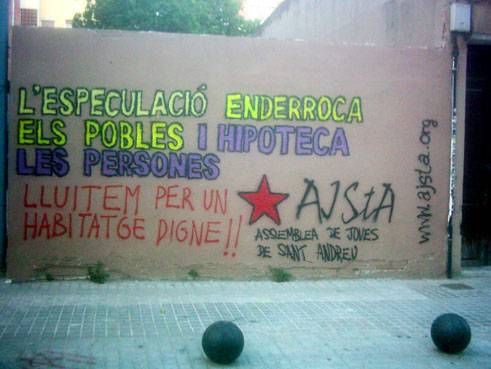 L'ESPECULACIÓ ENDERROCA
ELS POBLES I HIPOTECA
LES PERSONES
LLUITEM PER UN
HABITATGE DIGNE!!
AJStA
ASSEMBLEA DE JOVES
DE SANT ANDREU
www.ajsta.org